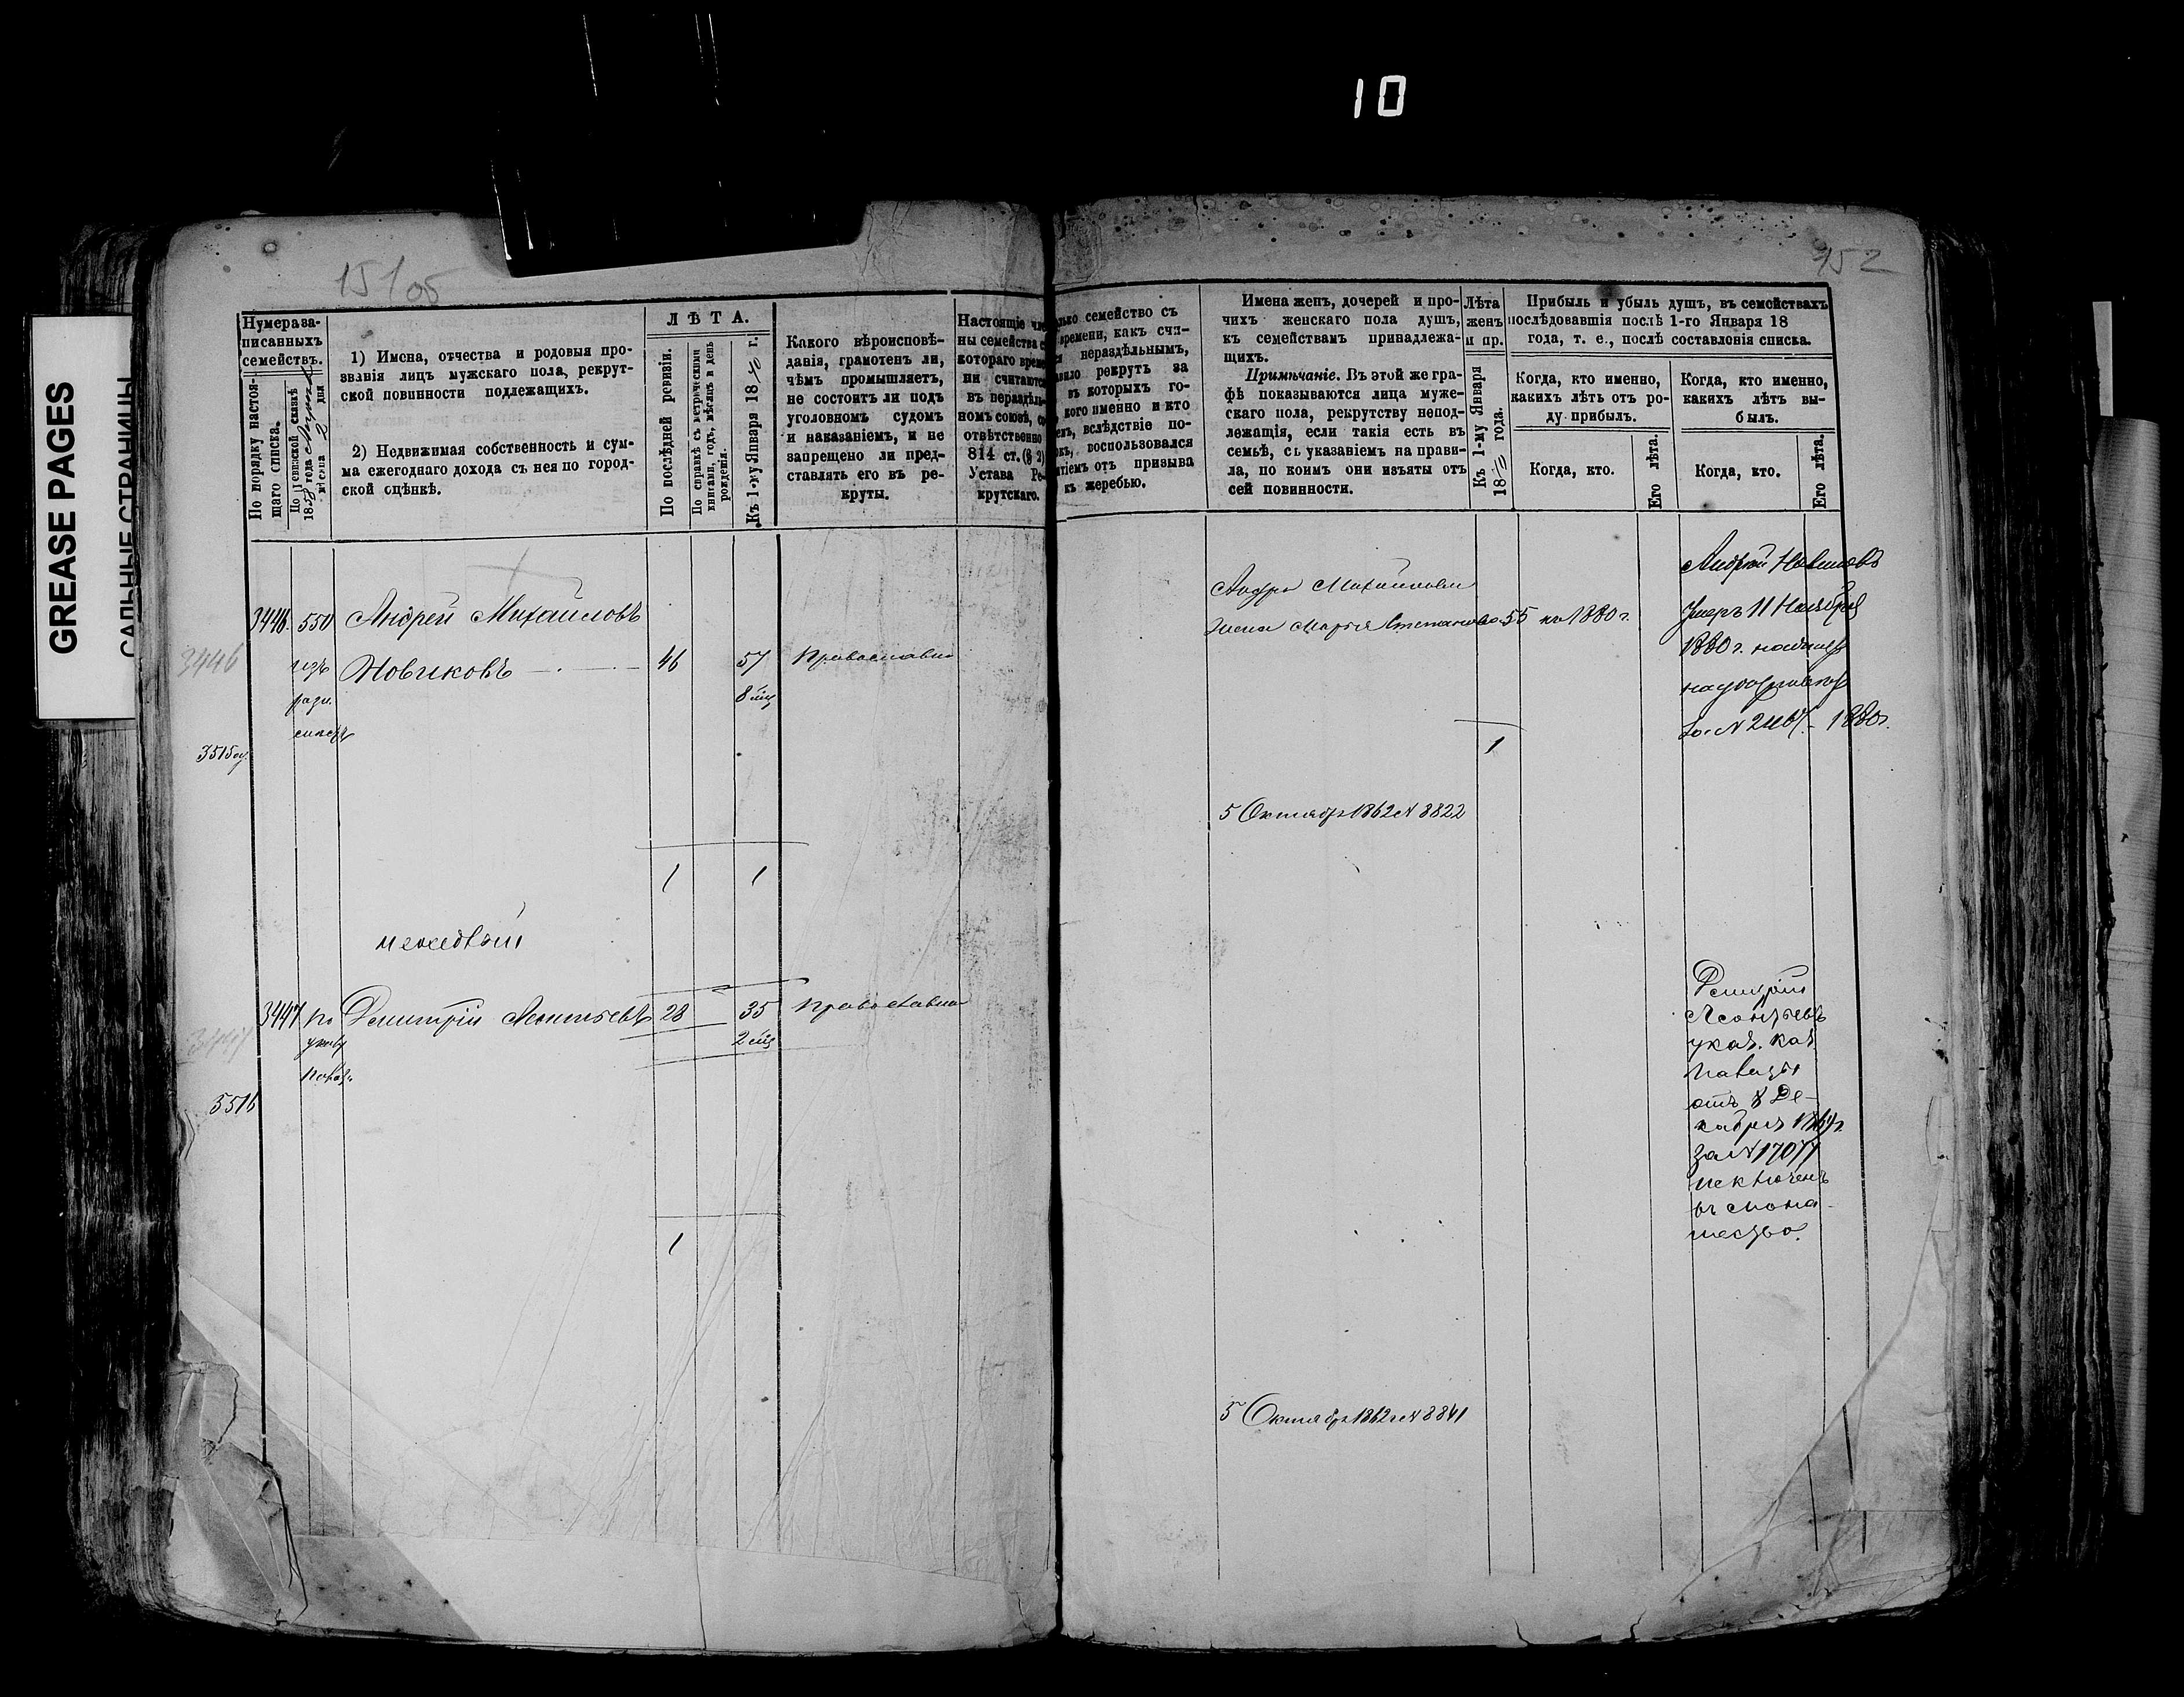 10
GREASE PAGES
САЛЬНЫЕ СТРАНИЦЫ
15105
952
Нумера за-
писанныхъ
семействъ.
По порядку настоя-
щаго списка.
По ревизской сказкѣ
1858 года
мѣсяца 2 дня
1) Имена, отчества и родовыя про-
званія лицъ мужскаго пола, рекрут-
ской повинности подлежащихъ.
2) Недвижимая собственность и сум-
ма ежегоднаго дохода съ нея по город-
ской оцѣнкѣ.
ЛѢТА.
По послѣдней ревизіи.
По справкѣ съ метрическими
книгами, годъ, мѣсяцъ и день
рожденія.
Къ 1-му Января 18 г.
Какого вѣроисповѣ-
данія, грамотенъ ли,
чѣмъ промышляетъ,
не состоитъ ли подъ
уголовномъ судомъ
и наказаніемъ, и не
запрещено ли пред-
ставлять его въ ре-
круты.
Настоящіе чле
ны семейства с
котораго време
ни считаются
въ нераздѣль-
номъ союзѣ, со
отвѣтственно
814 ст. (§ 2)
Устава Ре-
крутскаго.
лько семейство съ
времени, какъ счи-
нераздѣльнымъ,
вило рекрутъ за
въ которыхъ го-
кого именно и кто
вслѣдствіе по-
воспользовался
тіемъ отъ призыва
къ жеребью.
Имена женъ, дочерей и про-
чихъ женскаго пола душъ,
къ семействамъ принадлежа-
щихъ.
Примѣчаніе. Въ этой же гра-
фѣ показываются лица муже-
скаго пола, рекрутству непод-
лежащія, если такія есть въ
семьѣ, съ указаніемъ на прави-
ла, по коимъ они изъяты отъ
сей повинности.
Лѣта
женъ
и пр.
Къ 1-му Января
18 года.
Прибыль и убыль душъ, въ семействахъ
послѣдовавшія послѣ 1-го Января 18
года, т. е., послѣ составленія списка.
Когда, кто именно,
какихъ лѣтъ отъ ро-
ду прибылъ.
Когда, кто именно,
какихъ лѣтъ вы-
былъ.
Когда, кто.
Его лѣта.
Когда, кто.
Его лѣта.
3446. 550 Андрей Михайловъ
3446 Новиковъ 46 57 Православн
8 мц
3515
1 1
Андрея Михайлова
жена Марья Степанова 55 къ 1880 г.
1
5 Октября 1862 № 8822
Андрей Новиковъ
Умеръ 11 Ноября
1880 г.
1880 г.
3447 по Дмитрій Леонтьевъ 28 35 Православн
3447 2 мц
3516
1
Дмитрій
Леонтьевъ
указ. каз.
палаты
отъ 8 Де-
кабря 1864 г.
за № 17077
исключенъ
въ мона-
шество.
5 Октября 1862 г № 8841